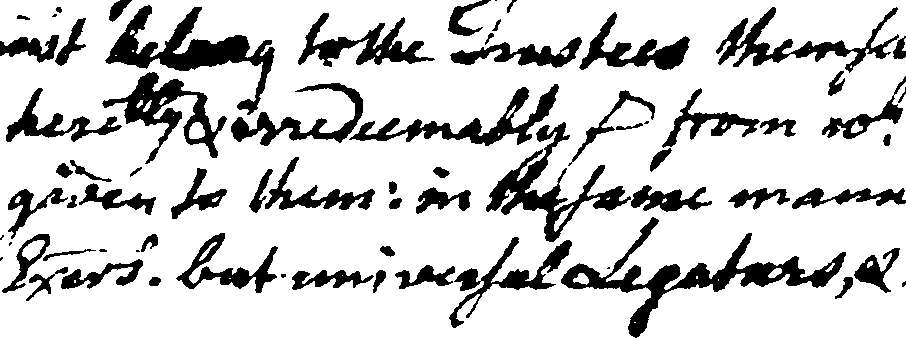 must belong to the Trustees themse
& irredeemably from
given to them: in the same mann
Exers. but universal Legatars, &